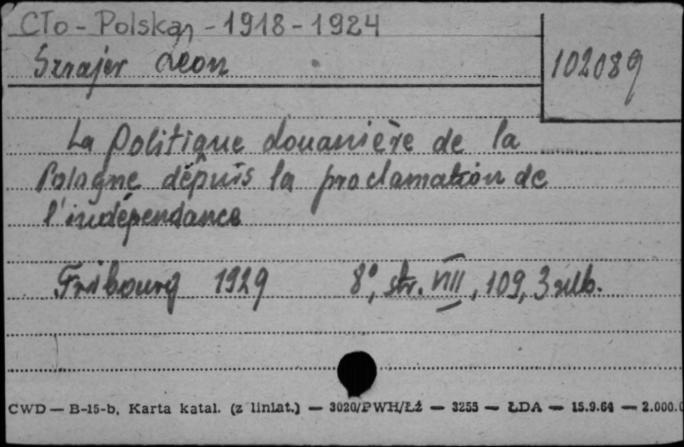 Cło - Polska - 1918 - 1924
Szrajer Leon
102089
La Politique douanière de la
Pologne dépuis la proclamation de
l'indépendance
Fribourg 1929 8°, str. VIII, 109, 3 nlb.
CWD — B-15-b, Karta katal. (z liniat.) — 3020/PWH/Łź — 3255 — ŁDA — 15.9.64 — 2.000.0